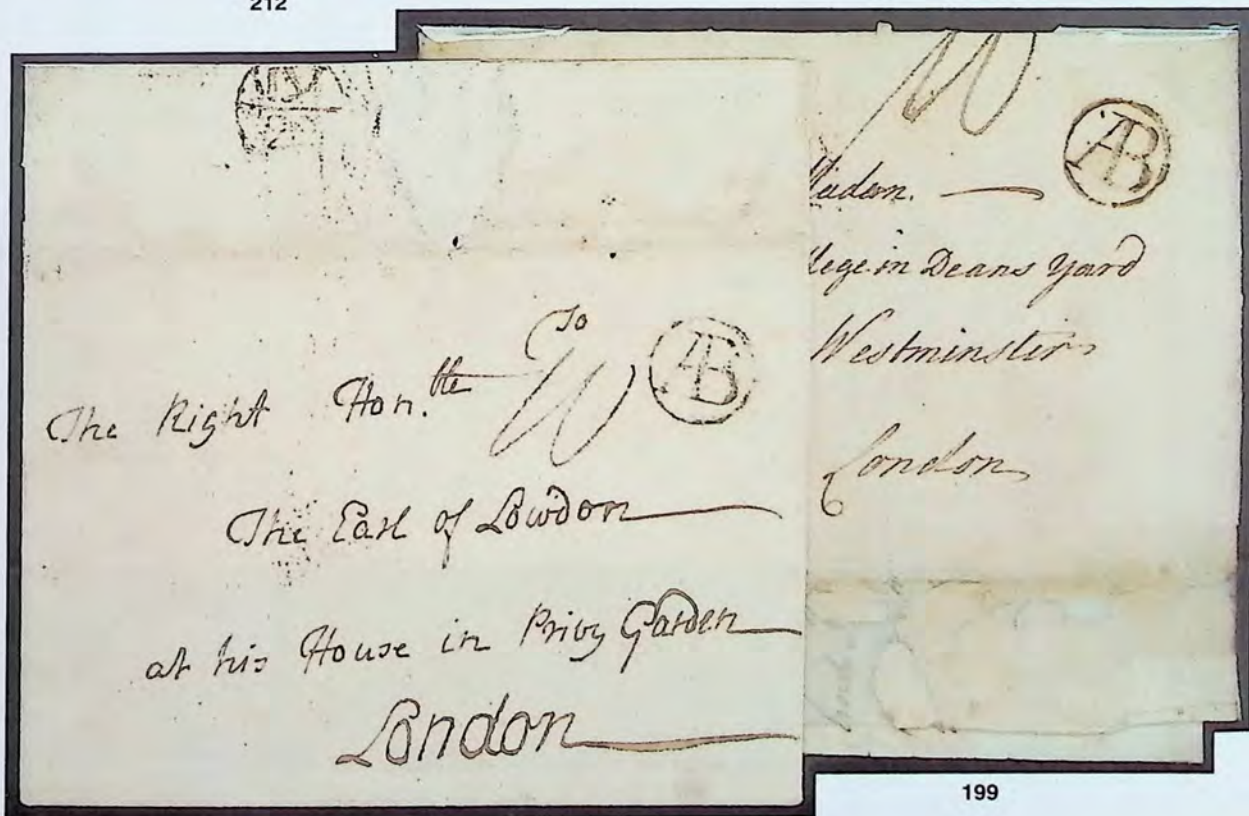 212
AB
To
The Right Hon.ble
The Earl of Lowdon
at his House in Privy Garden
London
AB
in Deans Yard
Westminster
London
199